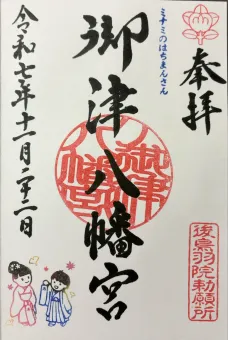 奉拝
ミナミのはちまんさん
御津八幡宮
御津
八幡宮
後鳥羽院勅願所
令和七年十一月二十二日